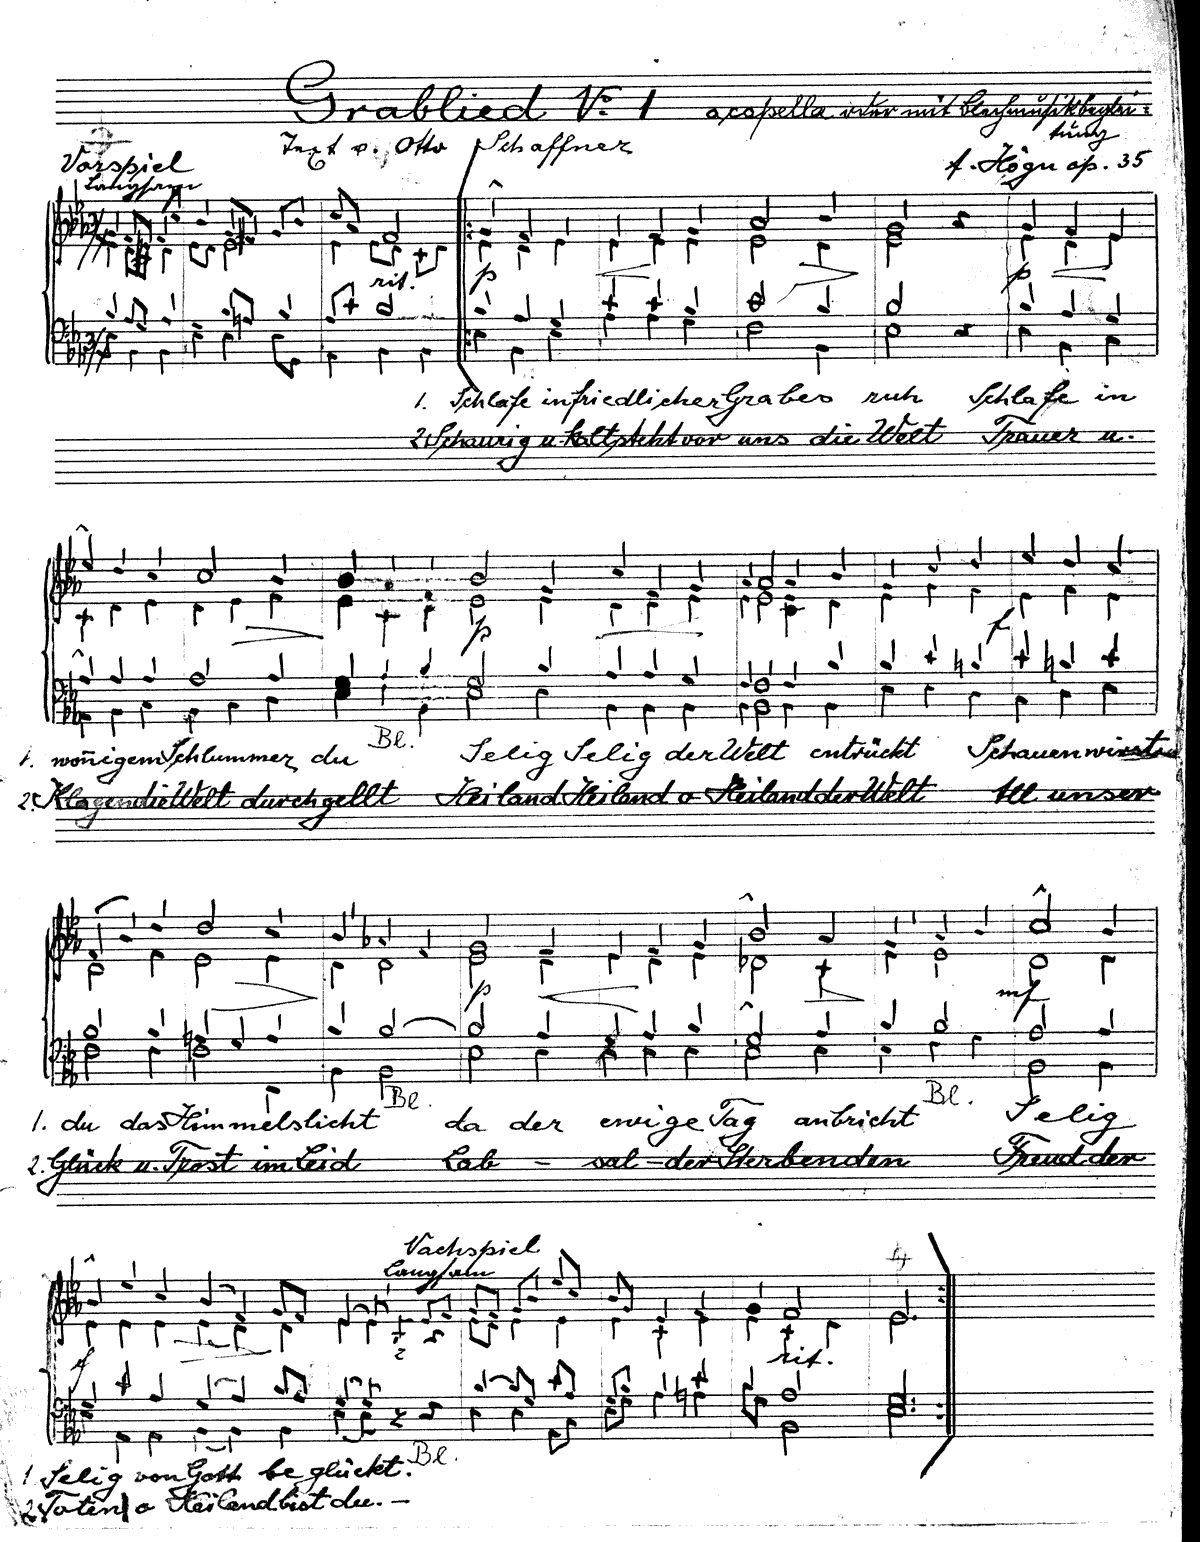 Grablied No. 1 acapella oder mit Blechmusikbeglei=
tung
Text v. Otto Schaffner
Vorspiel
A. Högn op. 35
Langsam
rit.
p
p
1. Schlafe in friedlicher Grabes ruh Schlafe in
2. Schaurig u. kalt steht vor uns die Welt Trauer u.
p
f
Bl.
1. woñigem Schlummer du Selig Selig der Welt entrückt Schauen wirst
2. Klagen die Welt durchgellt Heiland Heiland o Heiland der Welt All unser
p
mf
Bl.
Bl.
1. du das Himmelslicht da der ewige Tag anbricht Selig
2. Glück u. Trost im Leid Lab - sal - der Sterbenden Freud der
Nachspiel
Langsam
f
rit.
Bl.
1 Selig von Gott be glückt.
2. Toten o Heiland bist du. -